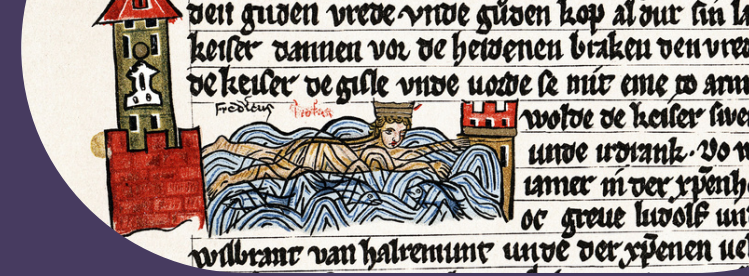 den guden vrede vnde guden kop al dur sin la
keiser dannen vor de heidenen braken den vre
de keiser de gisle vnde uorde se mit eme to arm
Fredericus
wolde de keiser swe
unde irdrank. Do w
iamer in der xp̄enh
oc greue ludolf un
wilbrant van halremunt unde der xp̄enen uel